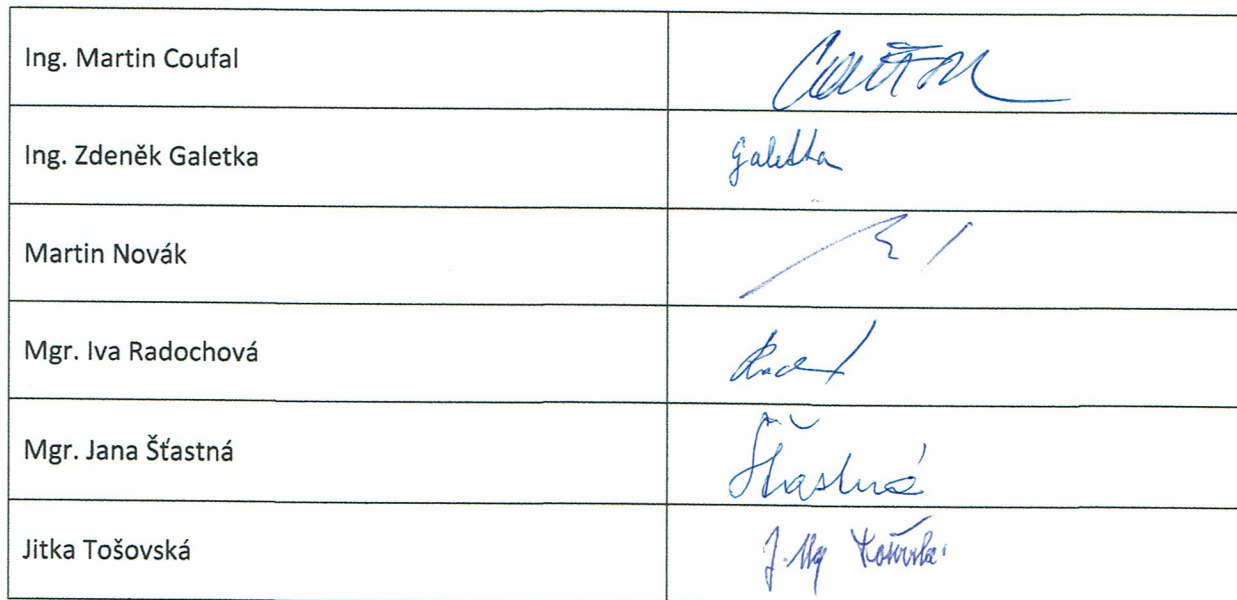 Ing. Martin Coufal
Ing. Zdeněk Galetka
Galetka
Martin Novák
Mgr. Iva Radochová
Mgr. Jana Šťastná
Šťastná
Jitka Tošovská